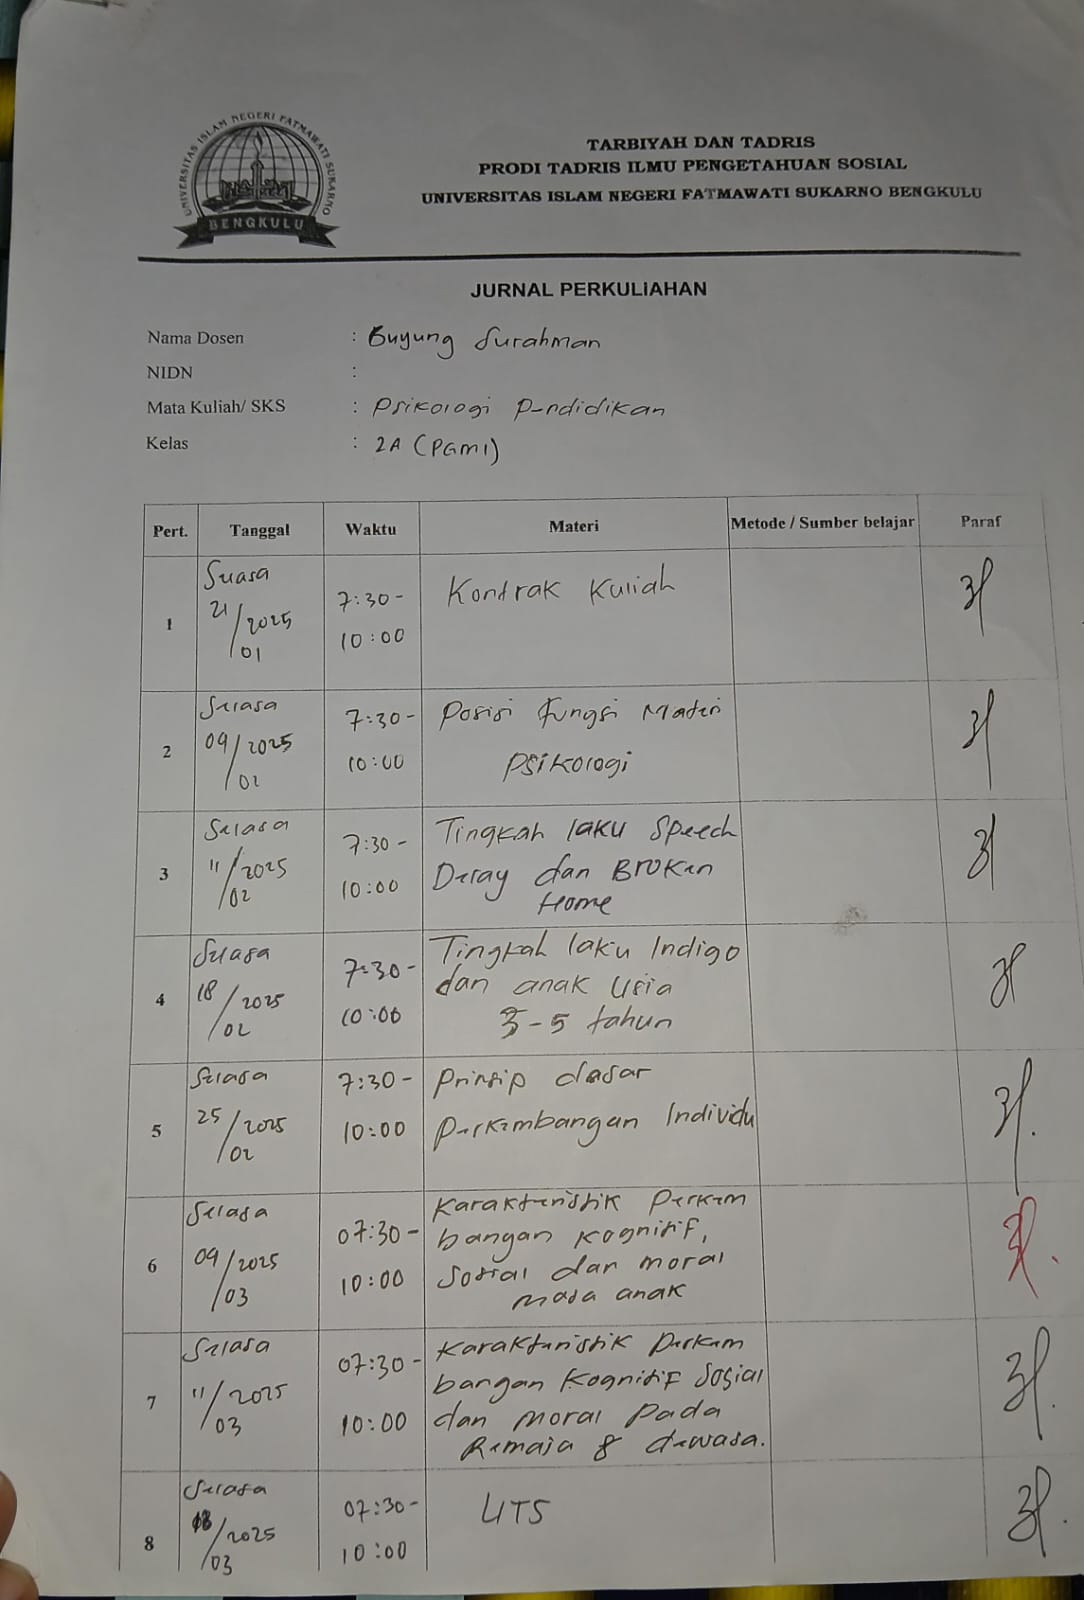 UNIVERSITAS ISLAM NEGERI FATMAWATI SUKARNO
BENGKULU
TARBIYAH DAN TADRIS
PRODI TADRIS ILMU PENGETAHUAN SOSIAL
UNIVERSITAS ISLAM NEGERI FATMAWATI SUKARNO BENGKULU
JURNAL PERKULIAHAN
Nama Dosen : Buyung Surahman
NIDN :
Mata Kuliah/ SKS : Psikologi Pendidikan
Kelas : 2A (PGMI)
Pert. Tanggal Waktu Materi Metode / Sumber belajar Paraf
1 Selasa 21/01/2025 7:30 - 10:00 Kontrak Kuliah
2 Selasa 04/02/2025 7:30 - 10:00 Posisi Fungsi Materi
Psikologi
3 Selasa 11/02/2025 7:30 - 10:00 Tingkah laku Speech
Delay dan Broken
Home
4 Selasa 18/02/2025 7:30 - 10:00 Tingkah laku Indigo
dan anak Usia
3-5 tahun
5 Selasa 25/02/2025 7:30 - 10:00 Prinsip dasar
Perkembangan Individu
6 Selasa 04/03/2025 07:30 - 10:00 Karakteristik Perkem
bangan Kognitif,
Sosial dan moral
masa anak
7 Selasa 11/03/2025 07:30 - 10:00 Karakteristik Perkem
bangan Kognitif Sosial
dan moral pada
Remaja & dewasa.
8 Selasa 18/03/2025 07:30 - 10:00 UTS